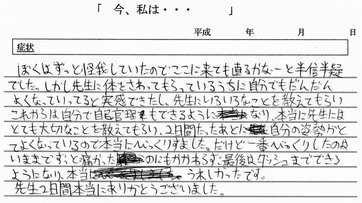 「 今、私は・・・ 」
平成 年 月 日
症状
ぼくはずっと怪我していたのでここに来ても直るかなーと半信半疑
でした。しかし先生に体をさわってもらっているうちに自分でもだんだん
よくなっていってると実感できたし、先生にいろいろなことを教えてもらい
これからは自分で自己管理もできるようになり、本当に先生には
とても大切なことを教えてもらい、2日間たったあとに自分の姿勢がと
てもよくなっているので本当にびっくりました。だけど一番びっくりしたのは
いままでずっと痛かったのにもかかわらず、最後はダッシュまでできる
ようになり、本当にうれしかったです。
先生2日間本当にありがとうございました。